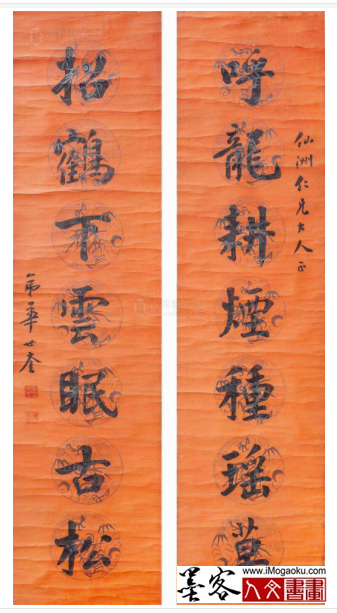 仙洲仁兄大人正
呼龍耕煙種瑤草
招鶴下雲眠古松
弟華世奎
墨客
www.iMogaoku.com
人文書畫